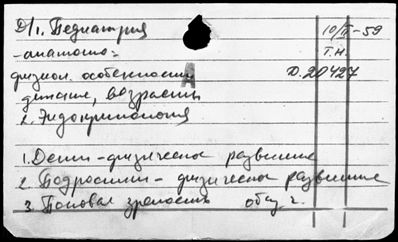 Д/1. Педиатрия 10/II-59
-анатомо- Т.Н.
физиол. особенности Д. 20427
детские, возрастн
2. Эндокринология
1. Дети - физическое развитие
2. Подростки - физическое развитие
3. Половая зрелость общ. г.